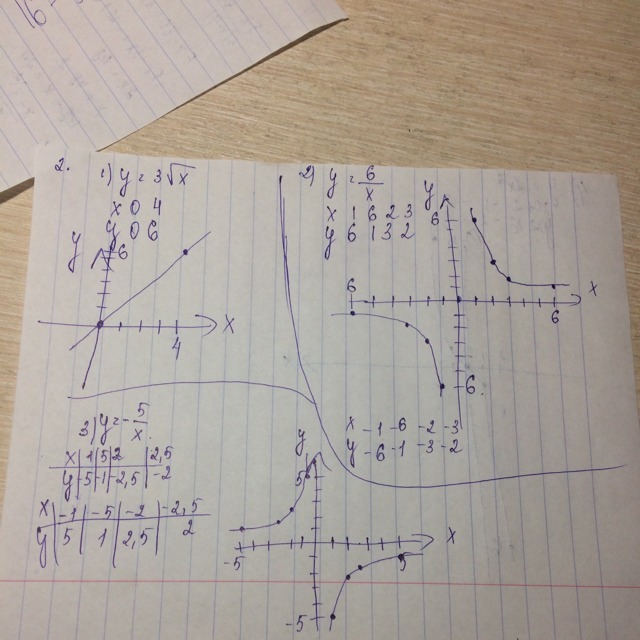 16
2.
1) y = 3√x
x 0 4
y 0 6
y
6
x
4
2) y = 6/x
x 1 6 2 3
y 6 1 3 2
y
6
6
x
6
6
x -1 -6 -2 -3
y -6 -1 -3 -2
3) y = -5/x
x | 1 | 5 | 2 | 2,5
y | -5 | -1 | -2,5 | -2
x | -1 | -5 | -2 | -2,5
y | 5 | 1 | 2,5 | 2
y
5
x
-5
5
-5